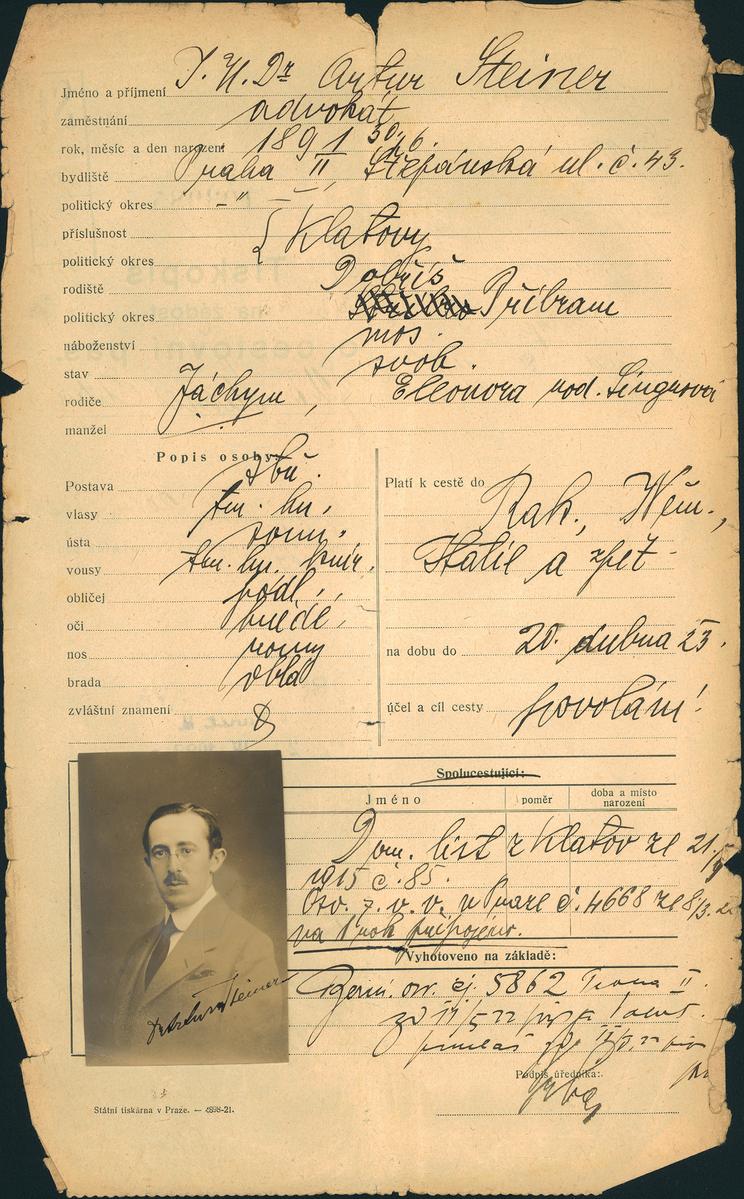 Jméno a příjmení J. U. Dr Artur Steiner
zaměstnání advokát
rok, měsíc a den narození 1891 30/6
bydliště Praha II, Štěpánská ul. č. 43.
politický okres –"–
příslušnost Klatovy
politický okres
rodiště Dobříš
politický okres Příbram
náboženství mos.
stav svob.
rodiče Jáchym, Eleonora roz.
manžel
Popis osoby:
Postava
vlasy tm. hn.
ústa
vousy tm. hn. knír.
obličej podl.
oči hnědé,
nos rovný
brada oblá
zvláštní znamení
Platí k cestě do Rak., Něm.,
Italie a zpět
na dobu do 20. dubna 23.
účel a cíl cesty povolání!
Spolucestující:
Jméno
poměr
doba a místo narození
Dom. list z Klatov ze 21/
1915 č. 85.
Osv. z. v. v. v Praze č. 4668 ze 8/3.
na
Vyhotoveno na základě:
čj. 5862 II
Podpis úředníka:
Dr Artur Steiner
Státní tiskárna v Praze. — 4898-21.